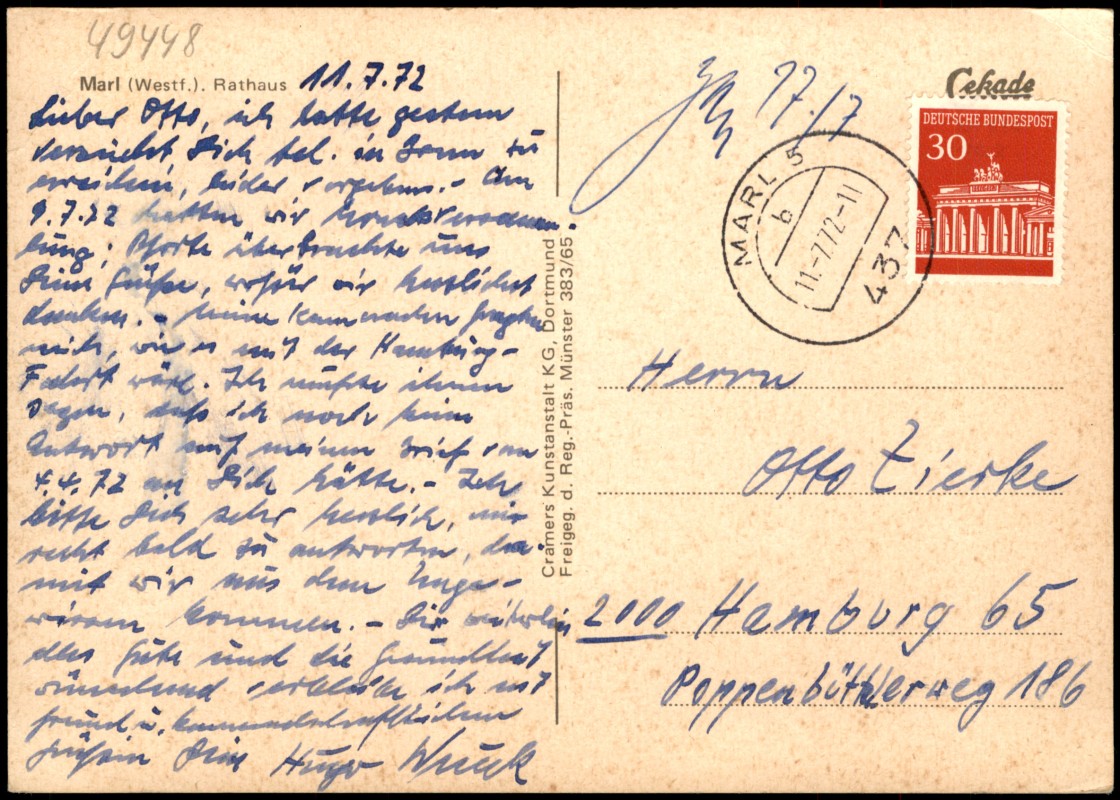 49448
Marl (Westf.). Rathaus 11.7.72
Lieber Otto, ich hatte gestern
versucht, Dich tel. in Bonn zu
erreichen, leider vergebens. - Am
9.7.72 hatten wir
; überbrachte uns
Deine Grüße, wofür wir herzlichst
danken. - Meine Kameraden fragten
mich, wie es mit der Hamburg-
Fahrt wäre. Ich mußte ihnen
sagen, daß ich noch keine
Antwort auf meinen Brief vom
4.4.72 an Dich hätte. - Ich
bitte Dich sehr herzlich, mir
recht bald zu antworten, da-
mit wir aus dem Unge-
wissen kommen. - Dir weiterhin
alles Gute und die Gesundheit
wünschend verbleibe ich mit
freund u. kameradschaftlichen
Grüßen Dein Hugo
Cramers Kunstanstalt KG, Dortmund
Freigeg. d. Reg.-Präs. Münster 383/65
17./7
Cekade
DEUTSCHE BUNDESPOST
30
MARL 5
b
11.-7.72-11
437
Herrn
Otto Zierke
2000 Hamburg 65
Poppenbüttlerweg 186